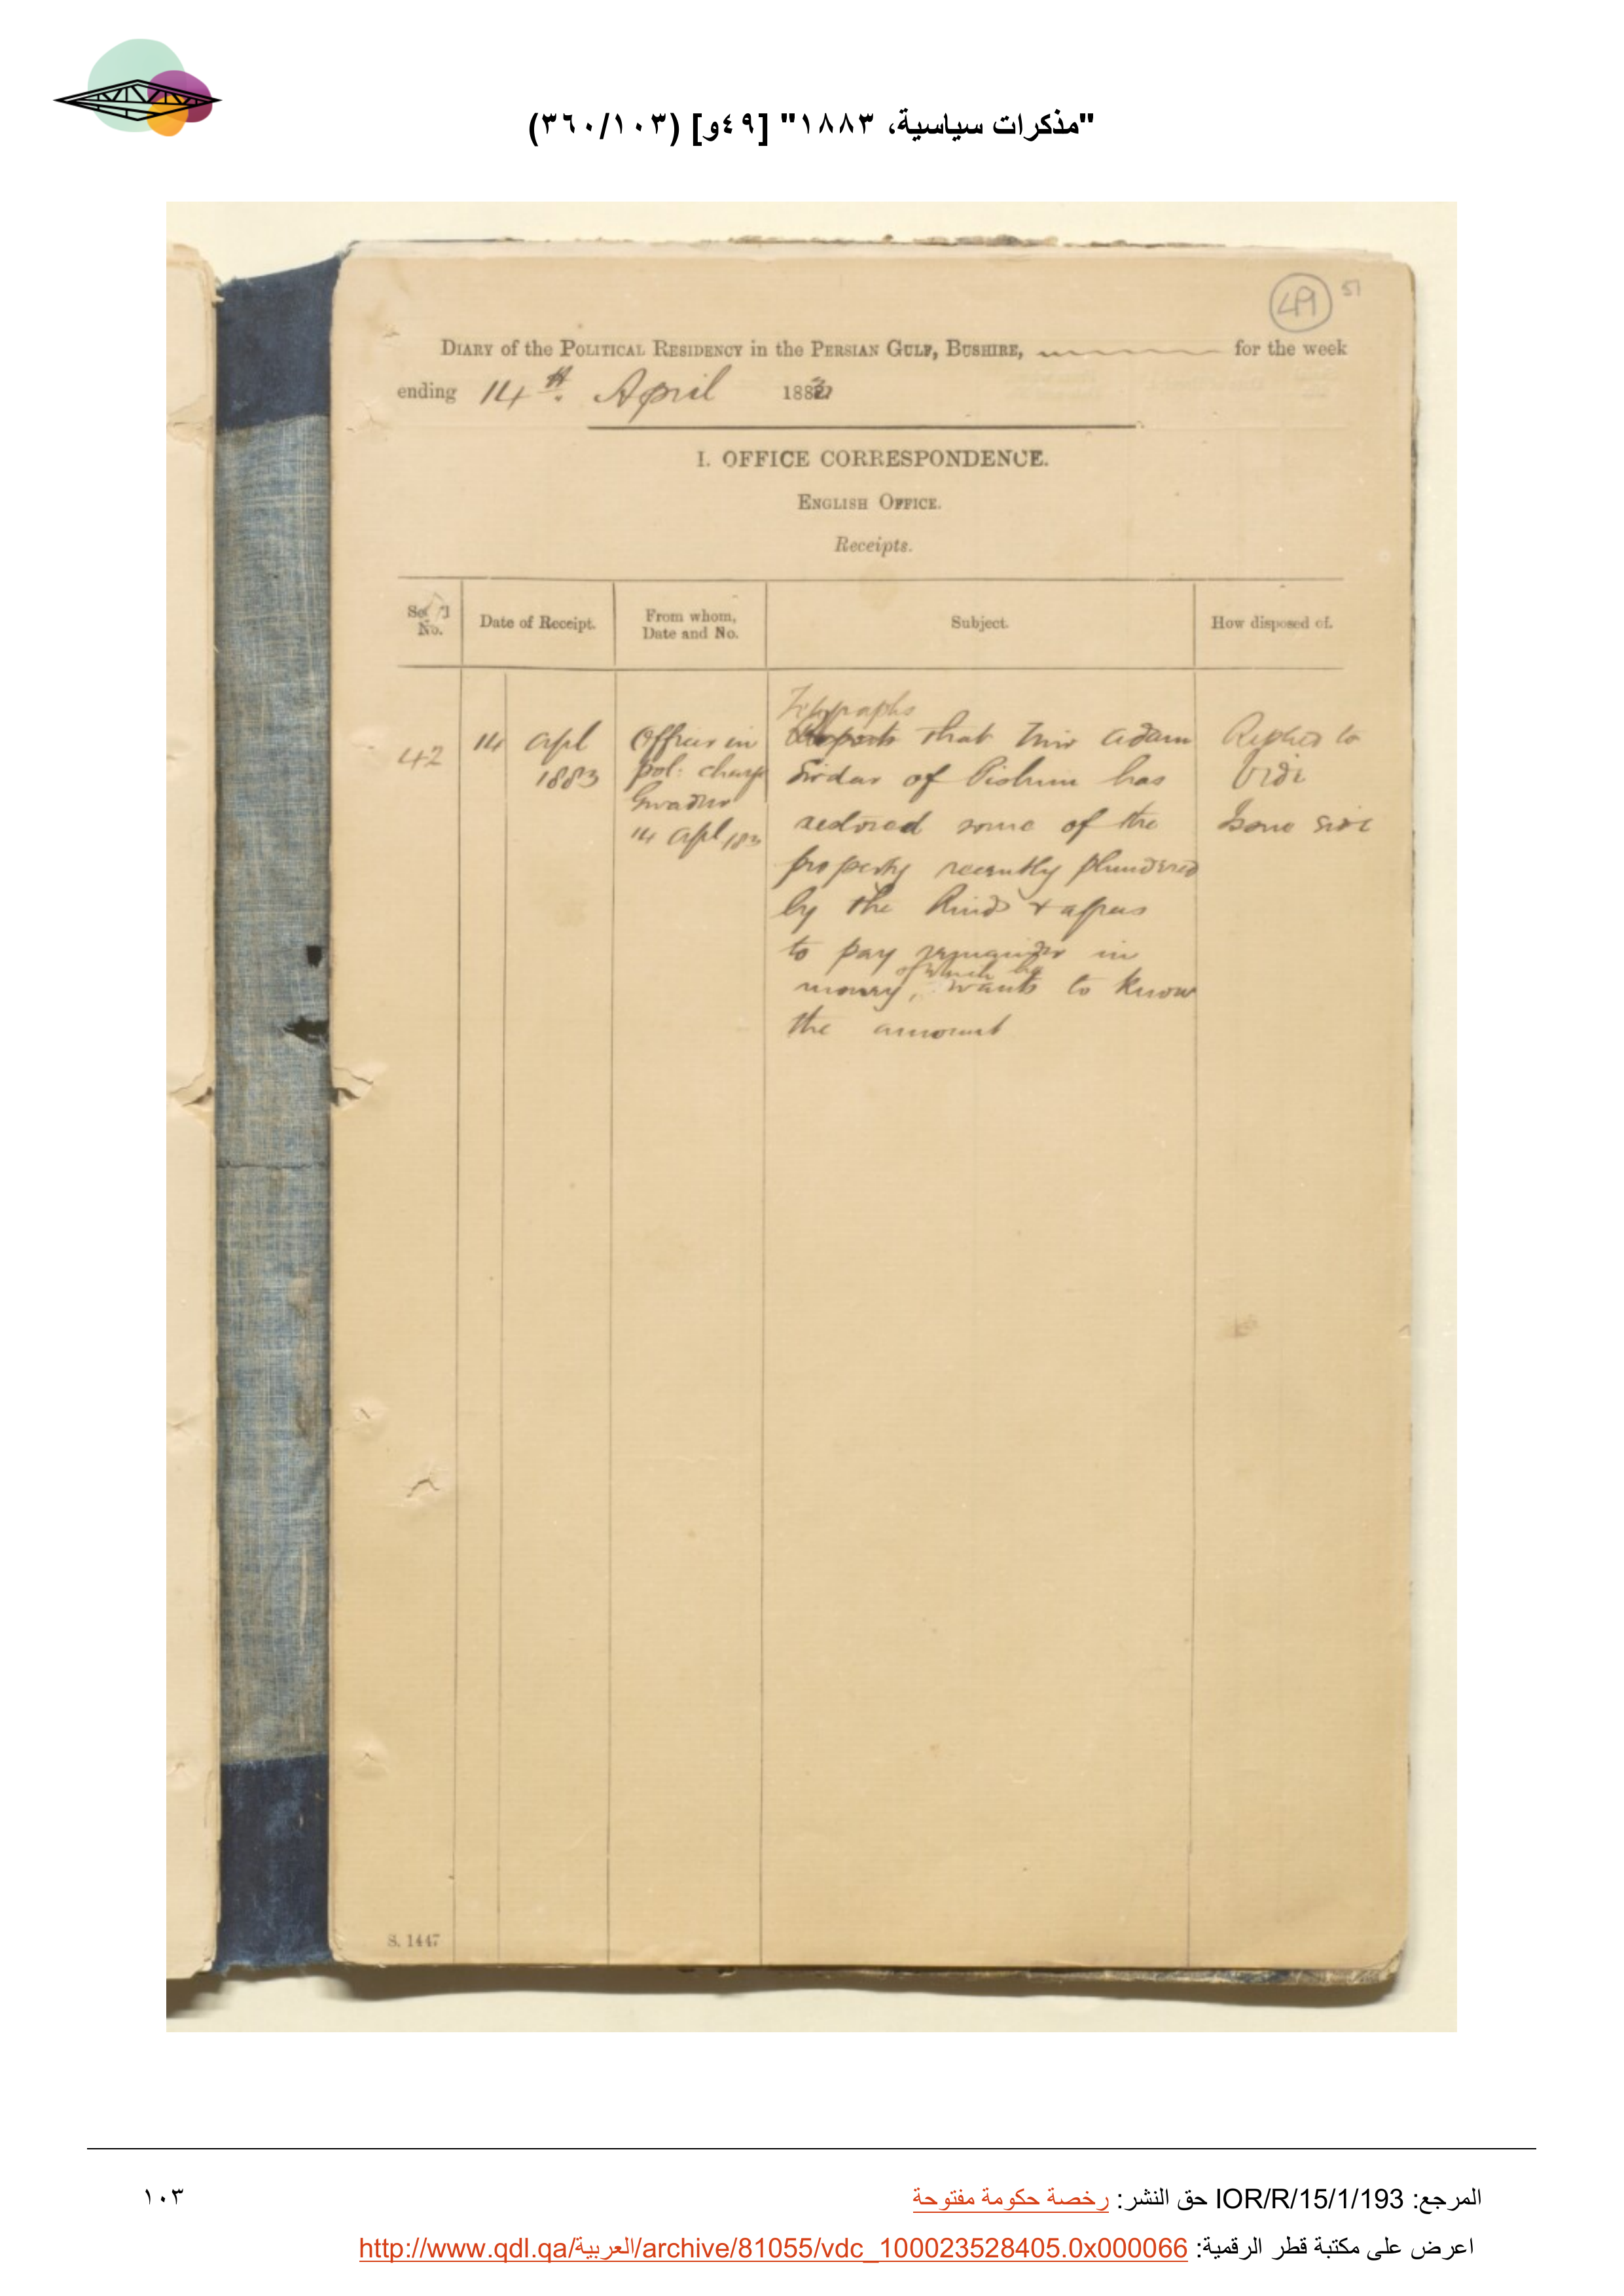 "مذكرات سياسية، ١٨٨٣" [٤٩و] (٣٦٠/١٠٣)
49 51
DIARY of the POLITICAL RESIDENCY in the PERSIAN GULF, BUSHIRE, for the week
ending 14th. April 1883
I. OFFICE CORRESPONDENCE.
ENGLISH OFFICE.
Receipts.
No.
Date of Receipt.
From whom,
Date and No.
Subject.
How disposed of.
42
14 Apl
1883
Officer in
pol: charge
Gwadur
14 Apl /83
Telegraphs
Reports that Mir Adam
Sirdar of Pishin has
restored some of the
property recently plundered
by the Rinds & agrees
to pay remainder in
of which he
money, wants to know
the amount
Replied to
Vide
Issue side
S. 1447
المرجع: IOR/R/15/1/193 حق النشر: رخصة حكومة مفتوحة
١٠٣
اعرض على مكتبة قطر الرقمية: http://www.qdl.qa/العربية/archive/81055/vdc_100023528405.0x000066